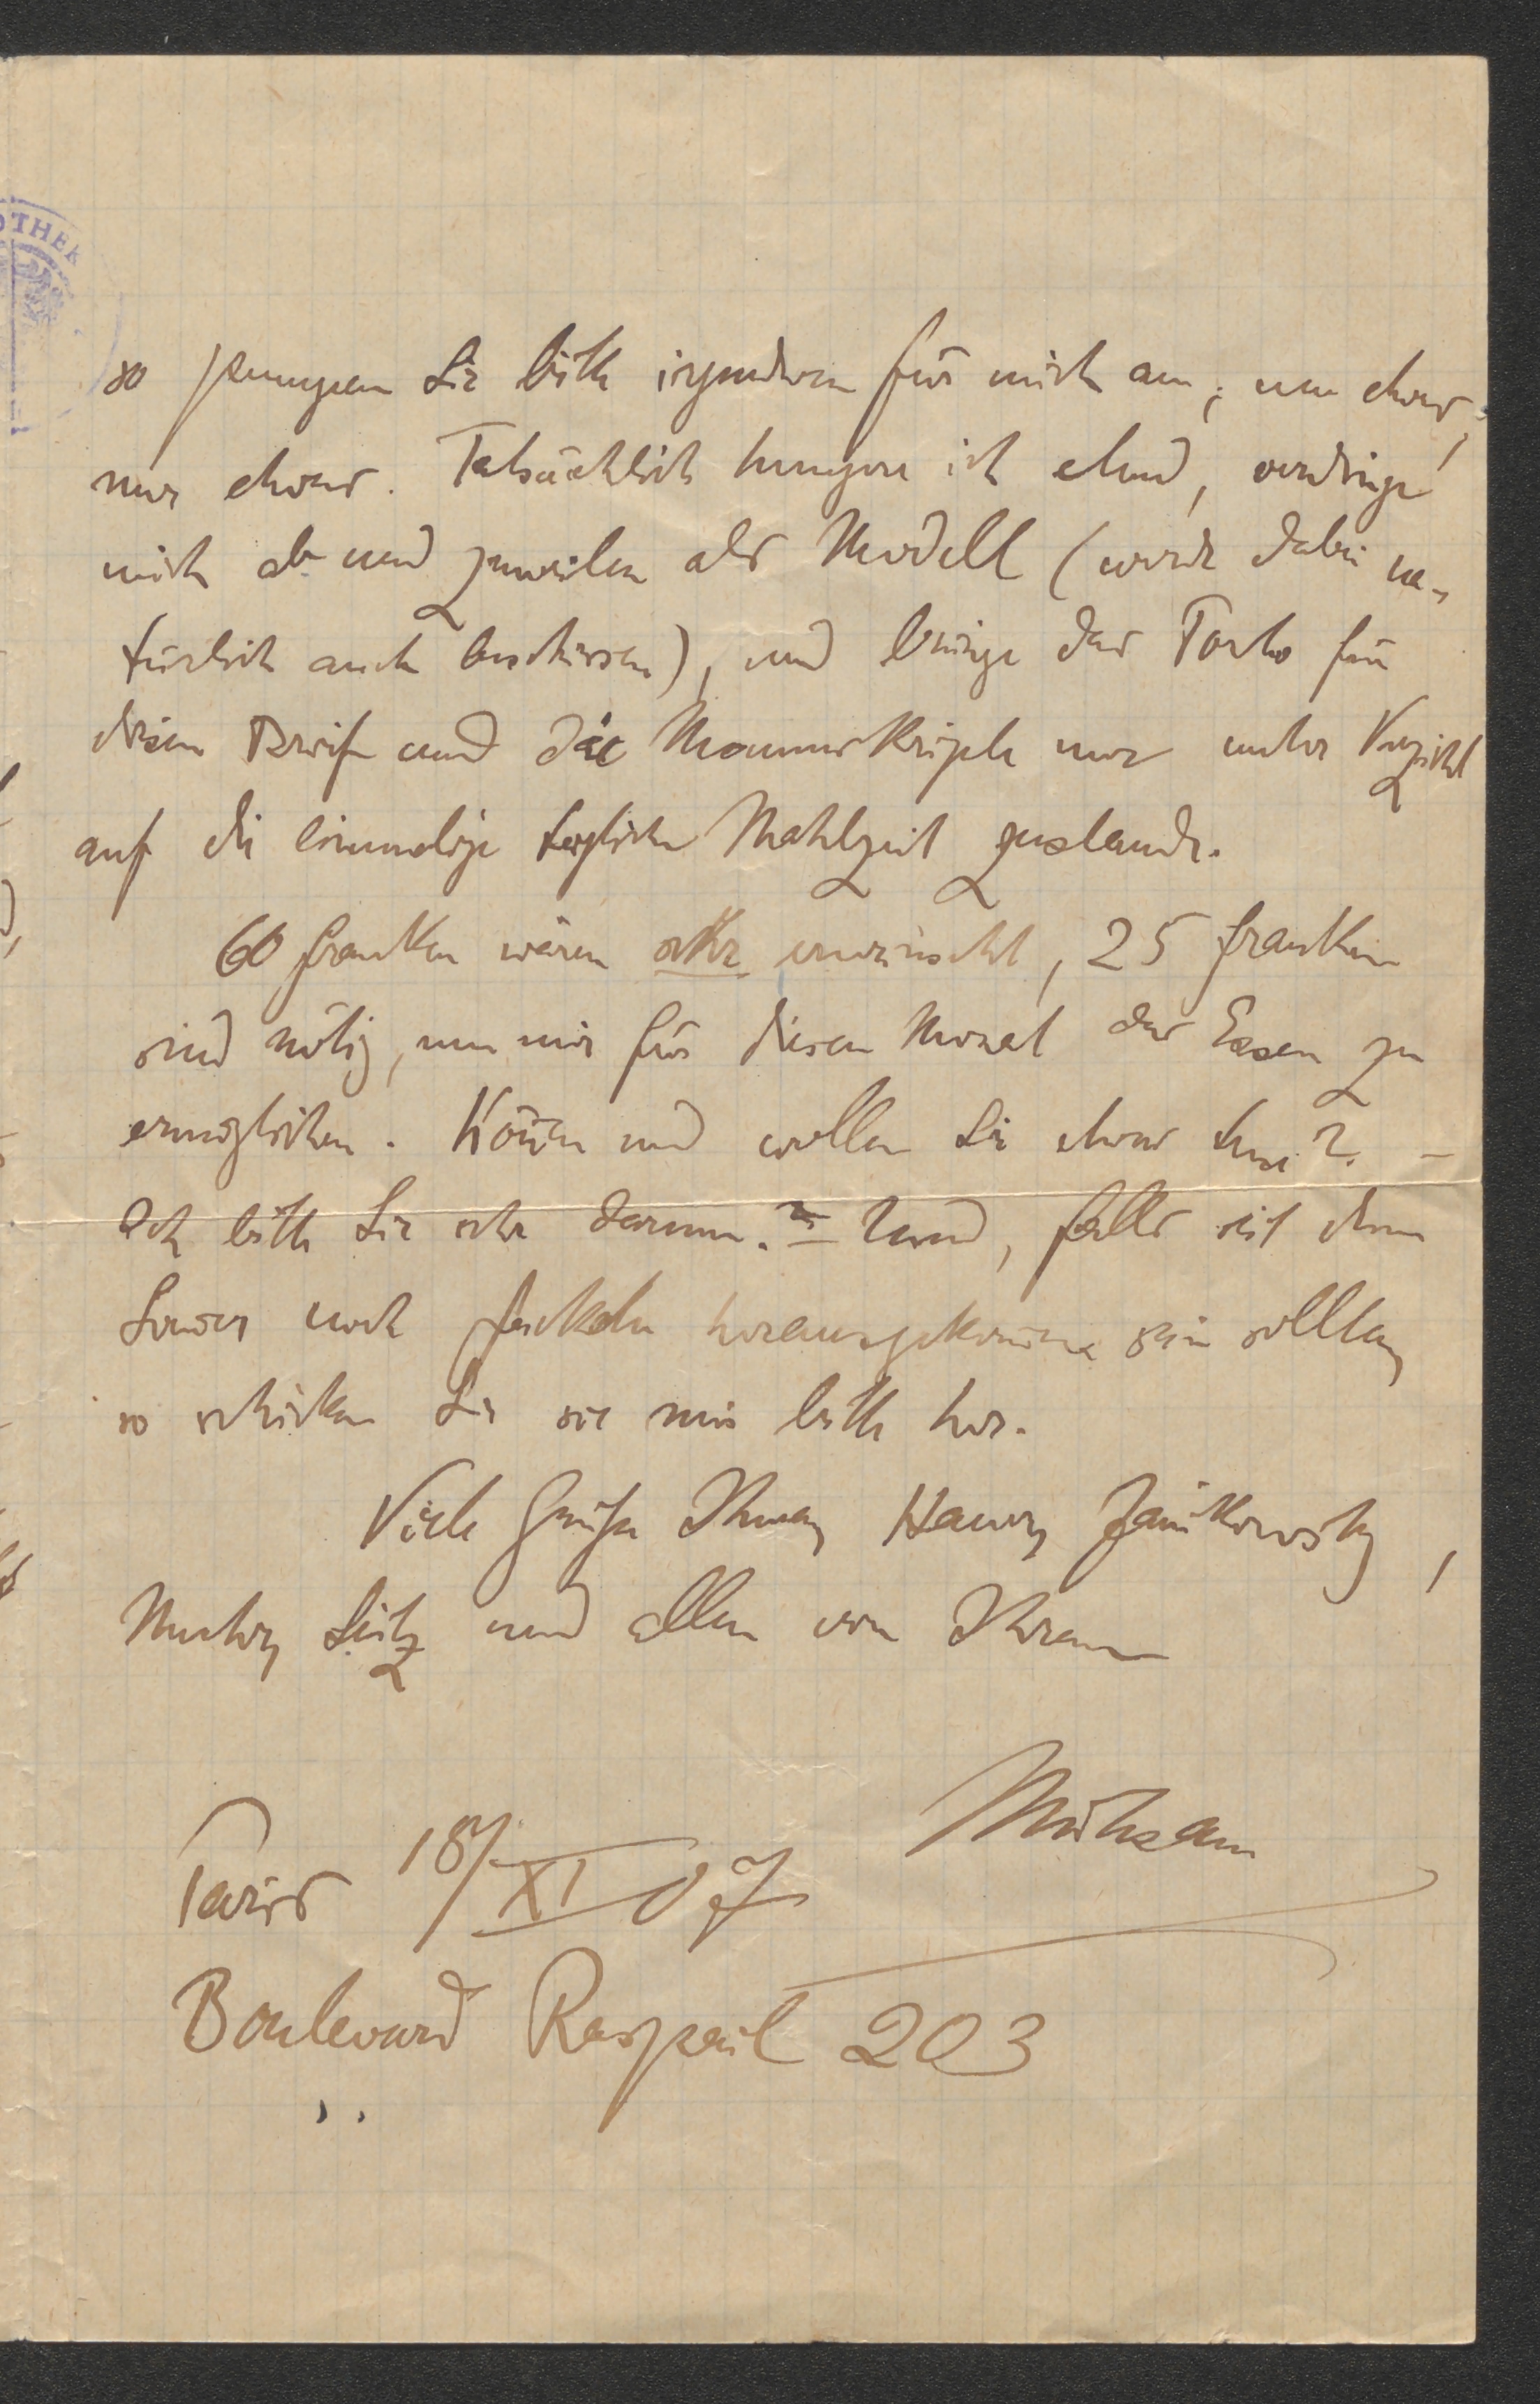 OTHEK
so pumpen Sie bitte irgendwen für mich an, um etwas,
nur etwas. Tatsächlich hungere ich elend, verdinge
mich ab und zuweilen als Modell (werde dabei na-
türlich auch beschissen), und bringe das Porto für
diesen Brief und die Manuskripte nur unter Verzicht
auf die einmalige tägliche Mahlzeit zustande.
60 Franken wären sehr erwünscht, 25 Franken
sind nötig, um mir für diesen Monat das Essen zu
ermöglichen. Können und wollen Sie etwas tun? –
Ich bitte Sie sehr darum. – Und, falls seit dem
Sommer noch Fackeln herausgekommen sein sollten,
so schicken Sie sie mir bitte her.
Viele Grüße Ihnen, Janikowsky,
Mutter Seitz und allen von Ihrem
Mühsam
Paris 18/XI 07
Boulevard Raspail 203